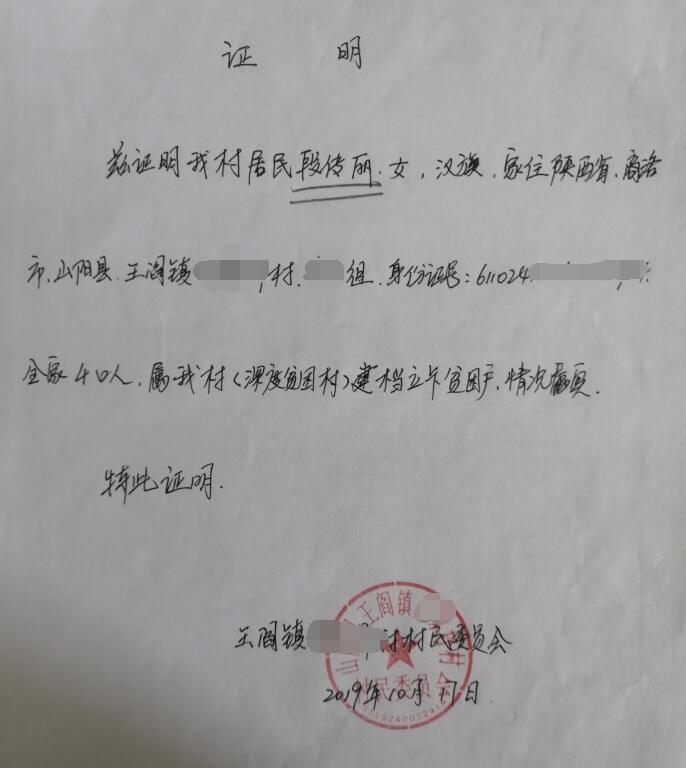 证 明
兹证明我村居民段传丽.女，汉族.家住陕西省.商洛
市.山阳县.王阎镇 村. 组.身份证号：611024
全家4口人.属我村（深度贫困村）建档立卡贫困户.情况属实.
特此证明.
王阎镇 村村民委员会
2019年10月17日.
王阎镇 村
村民委员会